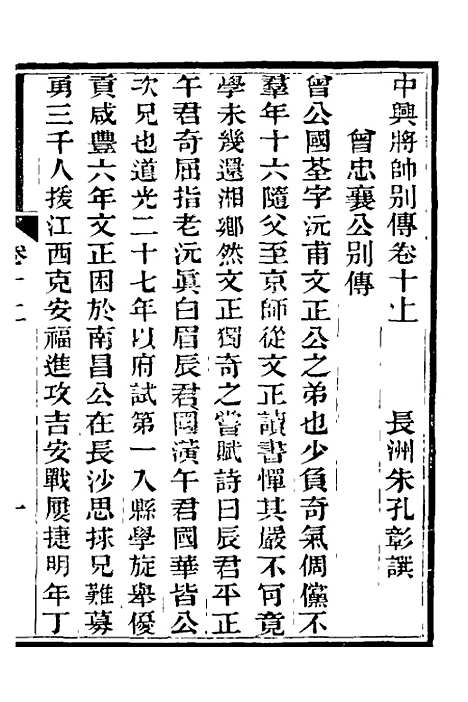 中興將帥別傳卷十上 長洲朱孔彰譔
曾忠襄公別傳
曾公國荃字沅甫文正公之弟也少負奇氣倜儻不
羣年十六隨父至京師從文正讀書憚其嚴不可竟
學未幾還湘鄉然文正獨奇之嘗賦詩曰辰君平正
午君奇屈指老沅眞白眉辰君國潢午君國華皆公
次兄也道光二十七年以府試第一入縣學旋舉優
貢咸豐六年文正困於南昌公在長沙思拯兄難募
勇三千人援江西克安福進攻吉安戰屢捷明年丁
卷十上
一